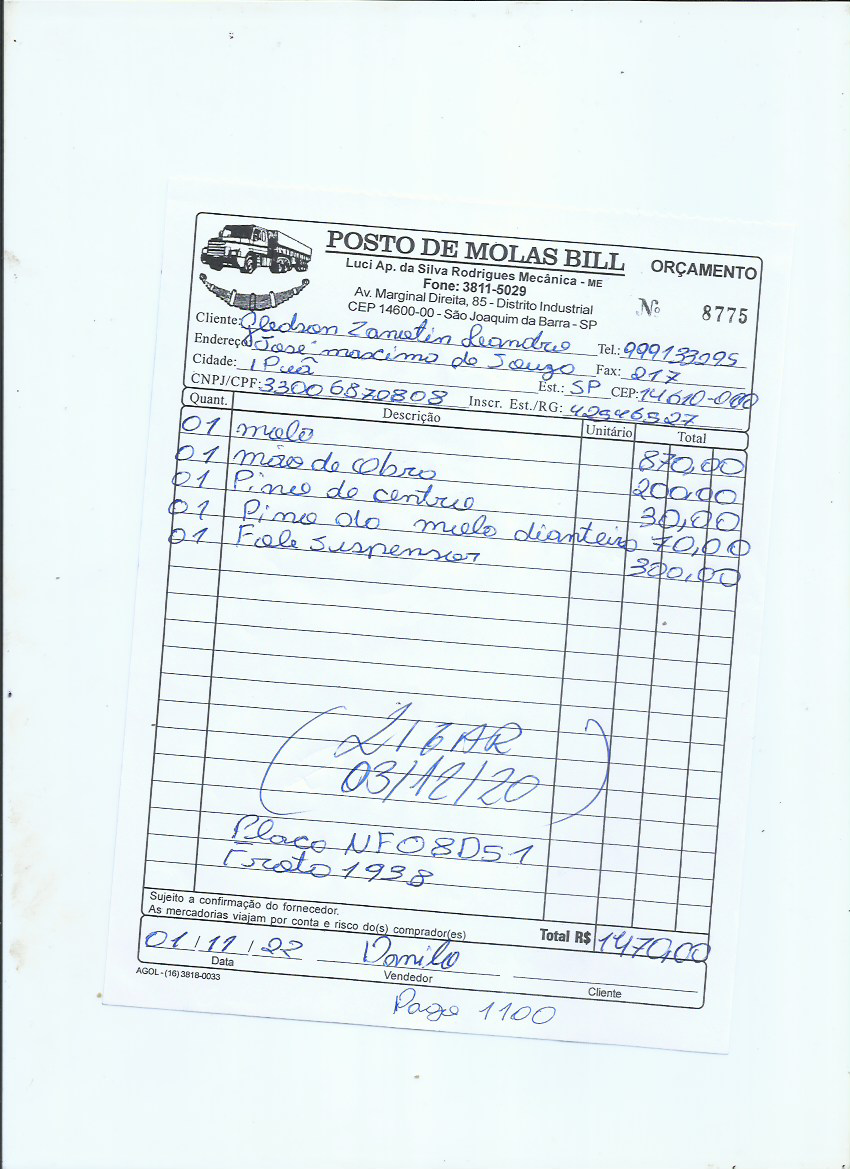 POSTO DE MOLAS BILL
ORÇAMENTO
Luci Ap. da Silva Rodrigues Mecânica - ME
Fone: 3811-5029
Av. Marginal Direita, 85 - Distrito Industrial
CEP 14600-00 - São Joaquim da Barra - SP
Nº 8775
Cliente: Gledson Zanotin Leandro Tel.: 999133295
Endereço: José maximo de Souza Fax: 217
Cidade: Ipuã Est.: SP CEP: 14610-000
CNPJ/CPF: 33006870808 Inscr. Est./RG: 42946527
Quant. Descrição Unitário Total
01 mola 870,00
01 mão de obra 200,00
01 Pino de centro 30,00
01 Pino da mola dianteiro 70,00
01 Fole suspensor 300,00
(LIGAR
03/12/20)
Placa NFO8D51
Frota 1938
Sujeito a confirmação do fornecedor.
As mercadorias viajam por conta e risco do(s) comprador(es)
Total R$ 1470,00
01/11/22 Danilo
Data Vendedor Cliente
AGOL - (16) 3818-0033
Pago 1100